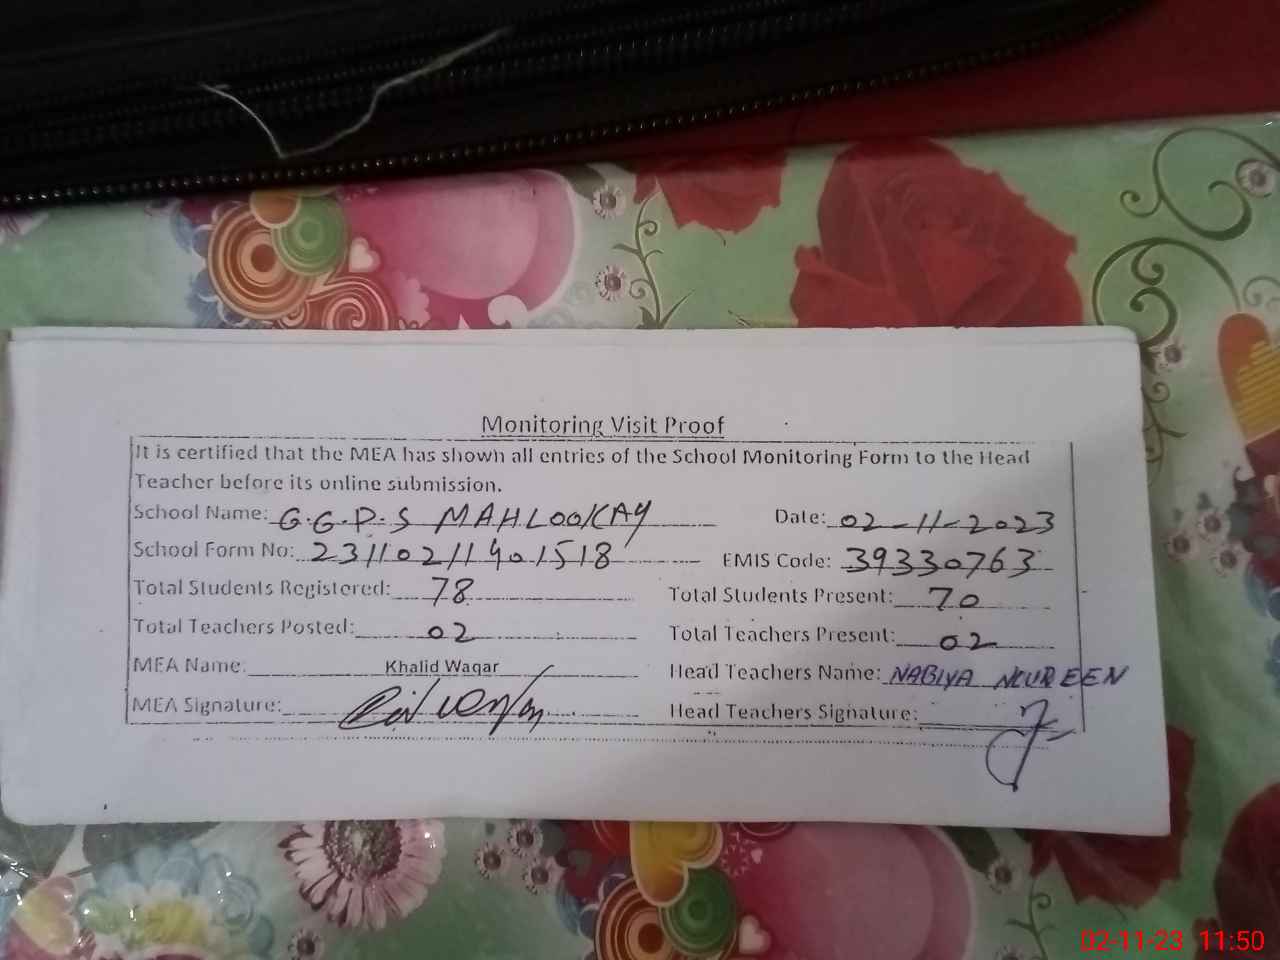 Monitoring Visit Proof
It is certified that the MEA has shown all entries of the School Monitoring Form to the Head
Teacher before its online submission.
School Name: G.G.P.S MAHLOOKAY Date: 02-11-2023
School Form No: 23110211401518 EMIS Code: 39330763
Total Students Registered: 78 Total Students Present: 70
Total Teachers Posted: 02 Total Teachers Present: 02
MEA Name: Khalid Waqar Head Teachers Name: NABIYA NOUREEN
MEA Signature: Head Teachers Signature:
02-11-23 11:50